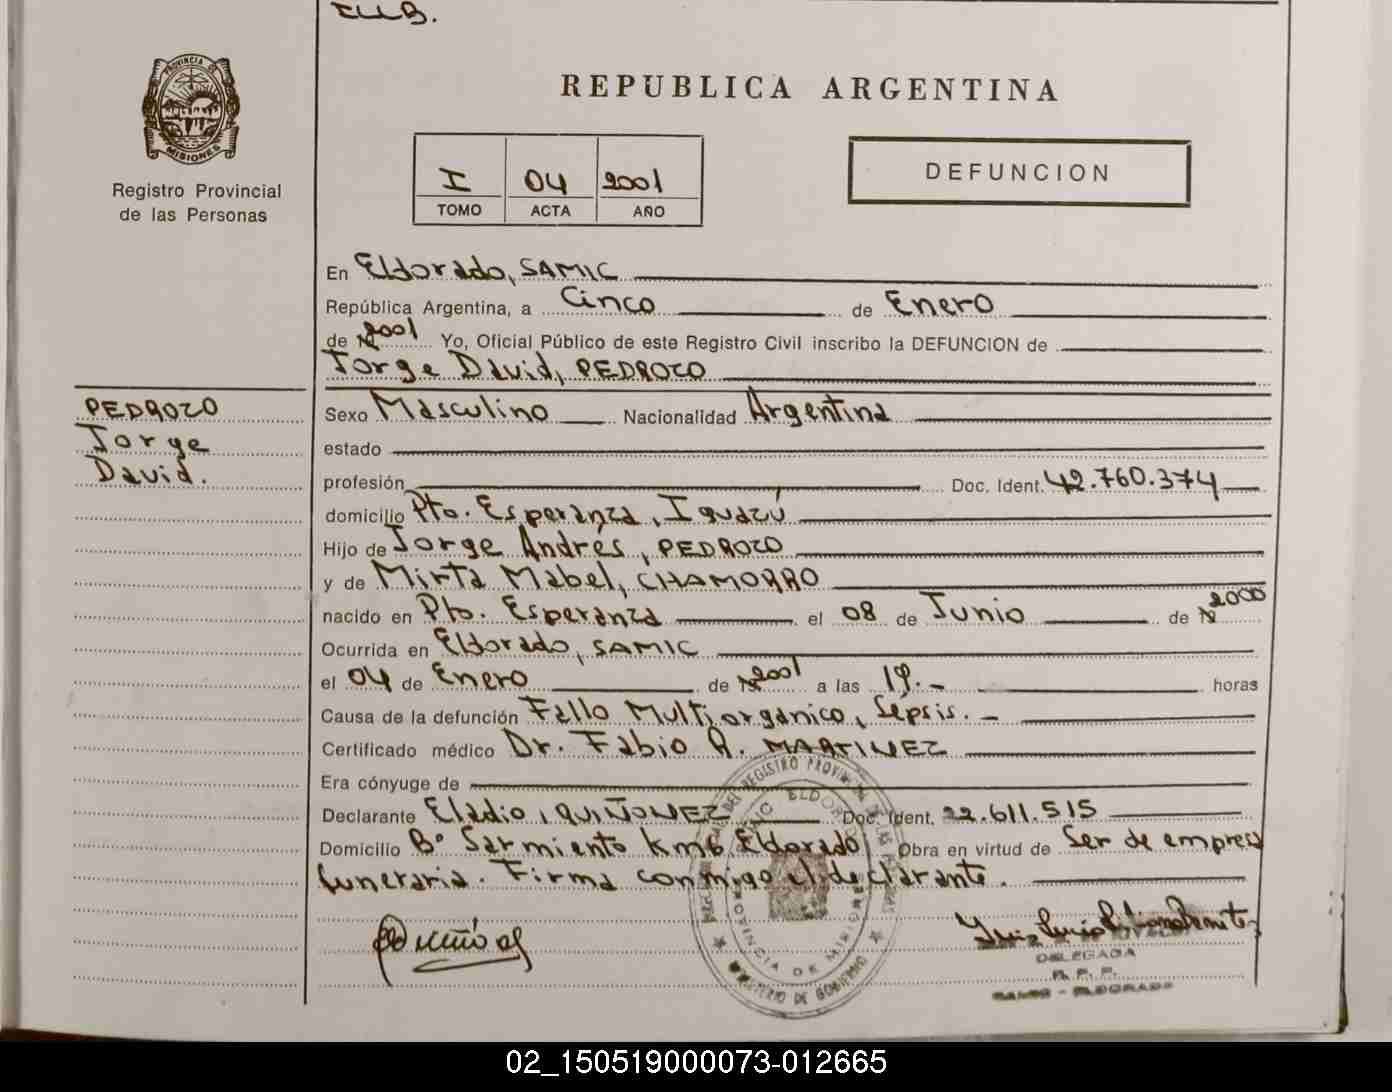 REPUBLICA ARGENTINA
PROVINCIA DE
MISIONES
Registro Provincial
de las Personas
I 04 2001
TOMO ACTA AÑO
DEFUNCION
En Eldorado, SAMIC
República Argentina, a Cinco de Enero
de 2001 Yo, Oficial Público de este Registro Civil inscribo la DEFUNCION de
Jorge David, PEDROZO
PEDROZO
Jorge
David.
Sexo Masculino Nacionalidad Argentina
estado
profesión Doc. Ident. 42.760.374
domicilio Pto. Esperanza, Iguazú
Hijo de Jorge Andrés, PEDROZO
y de Mirta Mabel, CHAMORRO
nacido en Pto. Esperanza el 08 de Junio de 2000
Ocurrida en Eldorado, SAMIC
el 04 de Enero de 2001 a las 19.- horas
Causa de la defunción Fallo Multiorgánico, Sépsis. -
Certificado médico Dr. Fabio R. MARTINEZ
Era cónyuge de
Declarante Eladio, QUIÑONEZ Doc. Ident. 22.611.515
Domicilio Bº Sarmiento Km6 Eldorado Obra en virtud de Ser de empresa
funeraria. Firma conmigo el declarante.
DELEGADA
R. P. P.
SAMIC - ELDORADO
REGISTRO PROVINCIAL DE LAS PERSONAS
ELDORADO
PROVINCIA DE MISIONES
MINISTERIO DE GOBIERNO
02_150519000073-012665